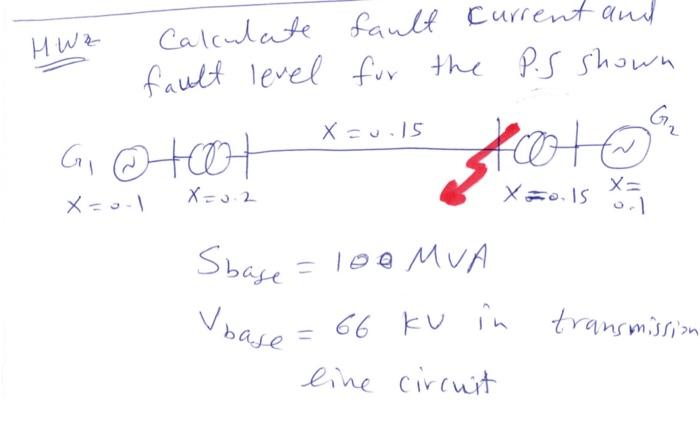 HW2 Calculate fault current and
fault level for the P.S shown
G1 X=0.15 G2
X=0.1 X=0.2 X=0.15 X=
0.1
Sbase = 100 MVA
Vbase = 66 KV in transmission
line circuit